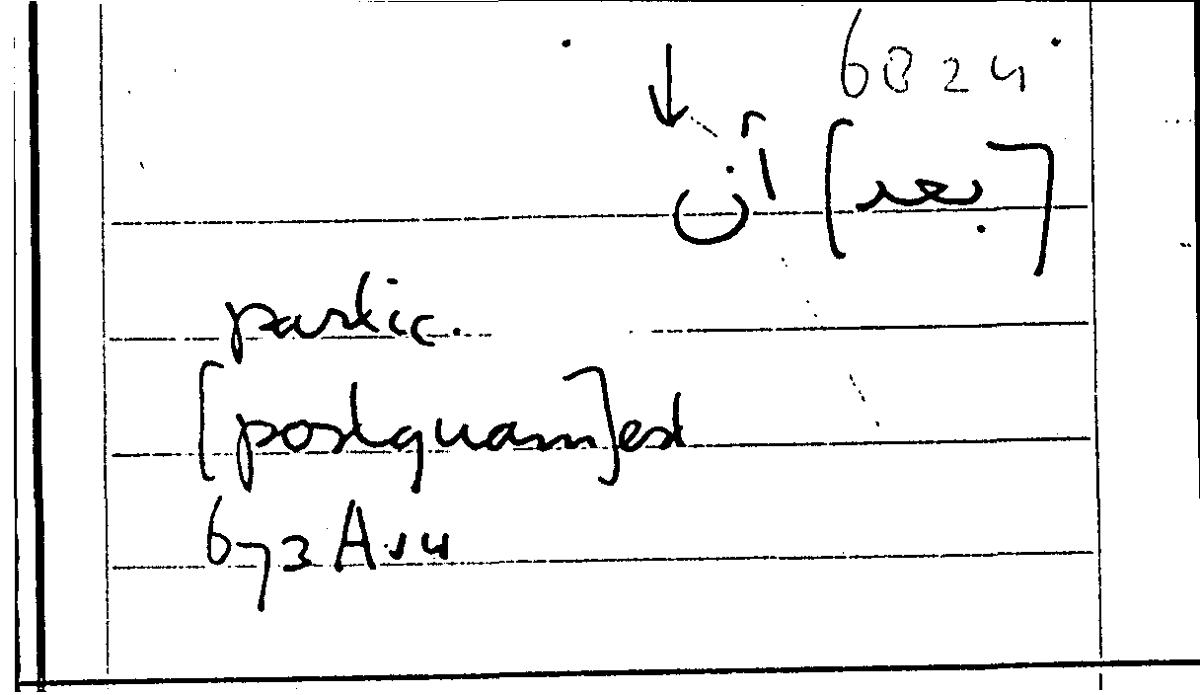 6824
[بعد] أن
partic.
[postquam] est
673 A 14